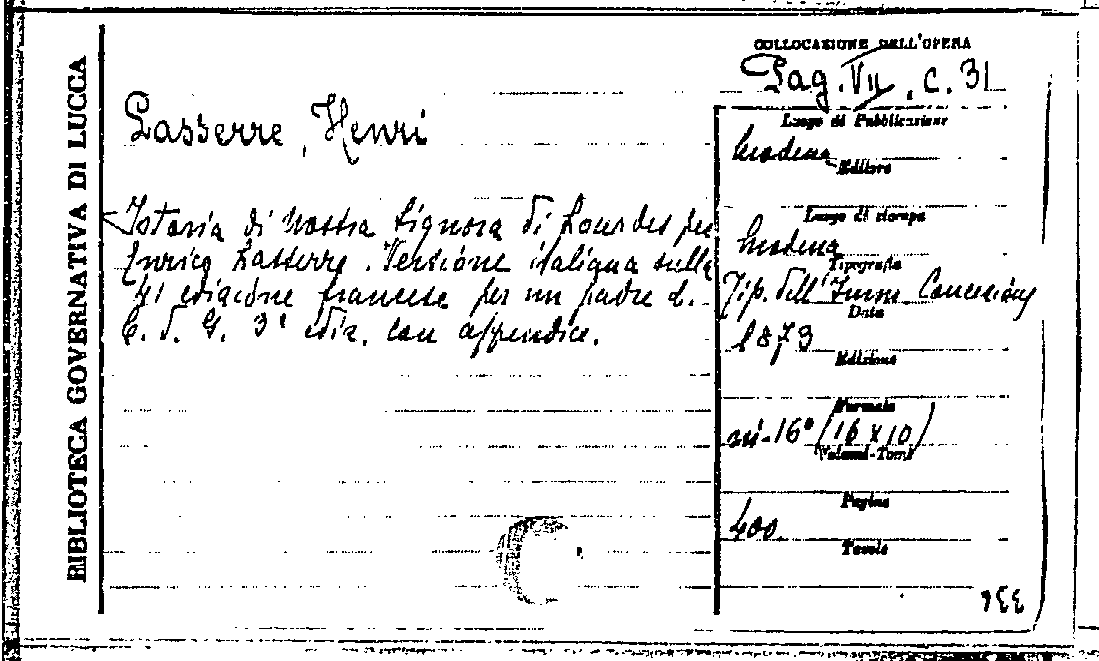 BIBLIOTECA GOVERNATIVA DI LUCCA
COLLOCAZIONE DELL'OPERA
Pag. VII. C. 31
Lasserre, Henri
Istoria di Nostra Signora di Lourdes per
Enrico Lasserre. Versione italiana sulla
41 edizione francese per un padre d.
C. d. G. 3ª ediz. con appendice.
Luogo di Pubblicazione
Modena
Editore
Luogo di stampa
Modena
Tipografia
Tip. dell'Imm. Concezione
Data
1873
Edizione
Formato
in-16° (16 x 10)
Volumi-Tomi
Pagine
400
Tavole